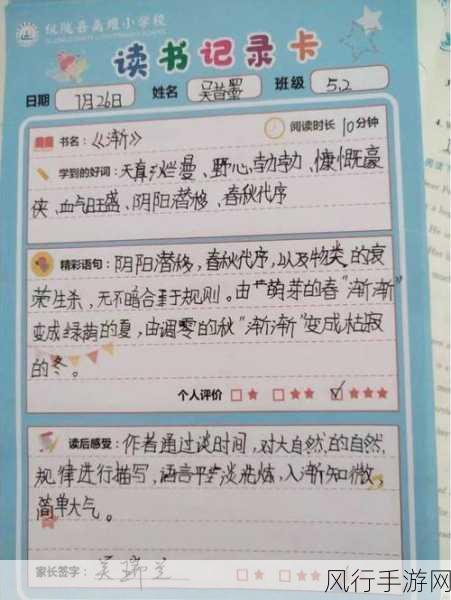 纵陵县高维小学校
读书记录卡
日期 7月26日 姓名 吴昔墨 班级 5.2
书名：《渐》 阅读时长 10分钟
学到的好词：天真烂漫、野心勃勃、慷慨豪
侠、血气旺盛、阴阳潜移、春秋代序
精彩语句：阴阳潜移，春秋代序，以及物类的衰
荣生杀，无不暗合于规则。由萌芽的春“渐渐”
变成绿荫的夏，由凋零的秋“渐渐”变成枯寂
的冬。
个人评价
读后感受：作者通过谈时间，对大自然的自然
规律进行描写，语言平淡光炼，入渐知微，
简单大气。
家长签字：吴瑞兰
风行手游网
www.fxsy.net